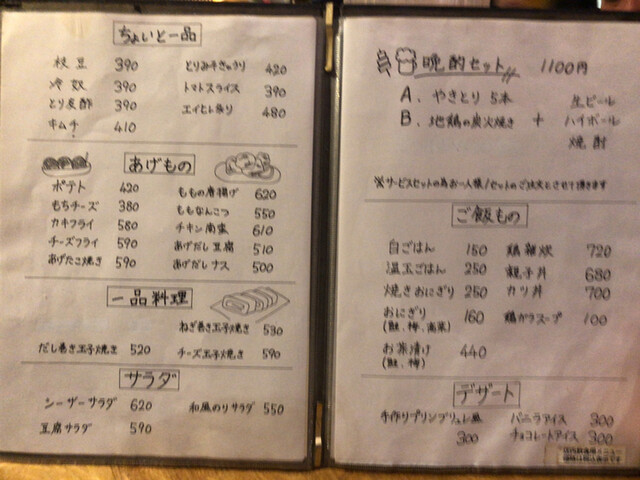 ちょいと一品
枝豆 390
冷奴 390
とり皮酢 390
キムチ 410
とりみそきゅうり 420
トマトスライス 390
エイヒレ炙り 480
あげもの
ポテト 420
もちチーズ 380
カキフライ 580
チーズフライ 590
あげたこ焼き 590
ももの唐揚げ 620
ももなんこつ 550
チキン南蛮 610
あげだし豆腐 510
あげだしナス 500
一品料理
ねぎ巻き玉子焼き 530
だし巻き玉子焼き 520
チーズ玉子焼き 590
サラダ
シーザーサラダ 620
和風のりサラダ 550
豆腐サラダ 590
晩酌セット 1100円
A、やきとり5本
B、地鶏の炭火焼き
+
生ビール
ハイボール
焼酎
※サービスセットの為お一人様1セットのご注文とさせて頂きます
ご飯もの
白ごはん 150
温玉ごはん 250
焼きおにぎり 250
おにぎり 160
(鮭、梅、高菜)
お茶漬け 440
(鮭、梅)
鶏雑炊 720
親子丼 680
カツ丼 700
鶏ガラスープ 100
デザート
手作りプリンブリュレ風
300
バニラアイス 300
チョコレートアイス 300